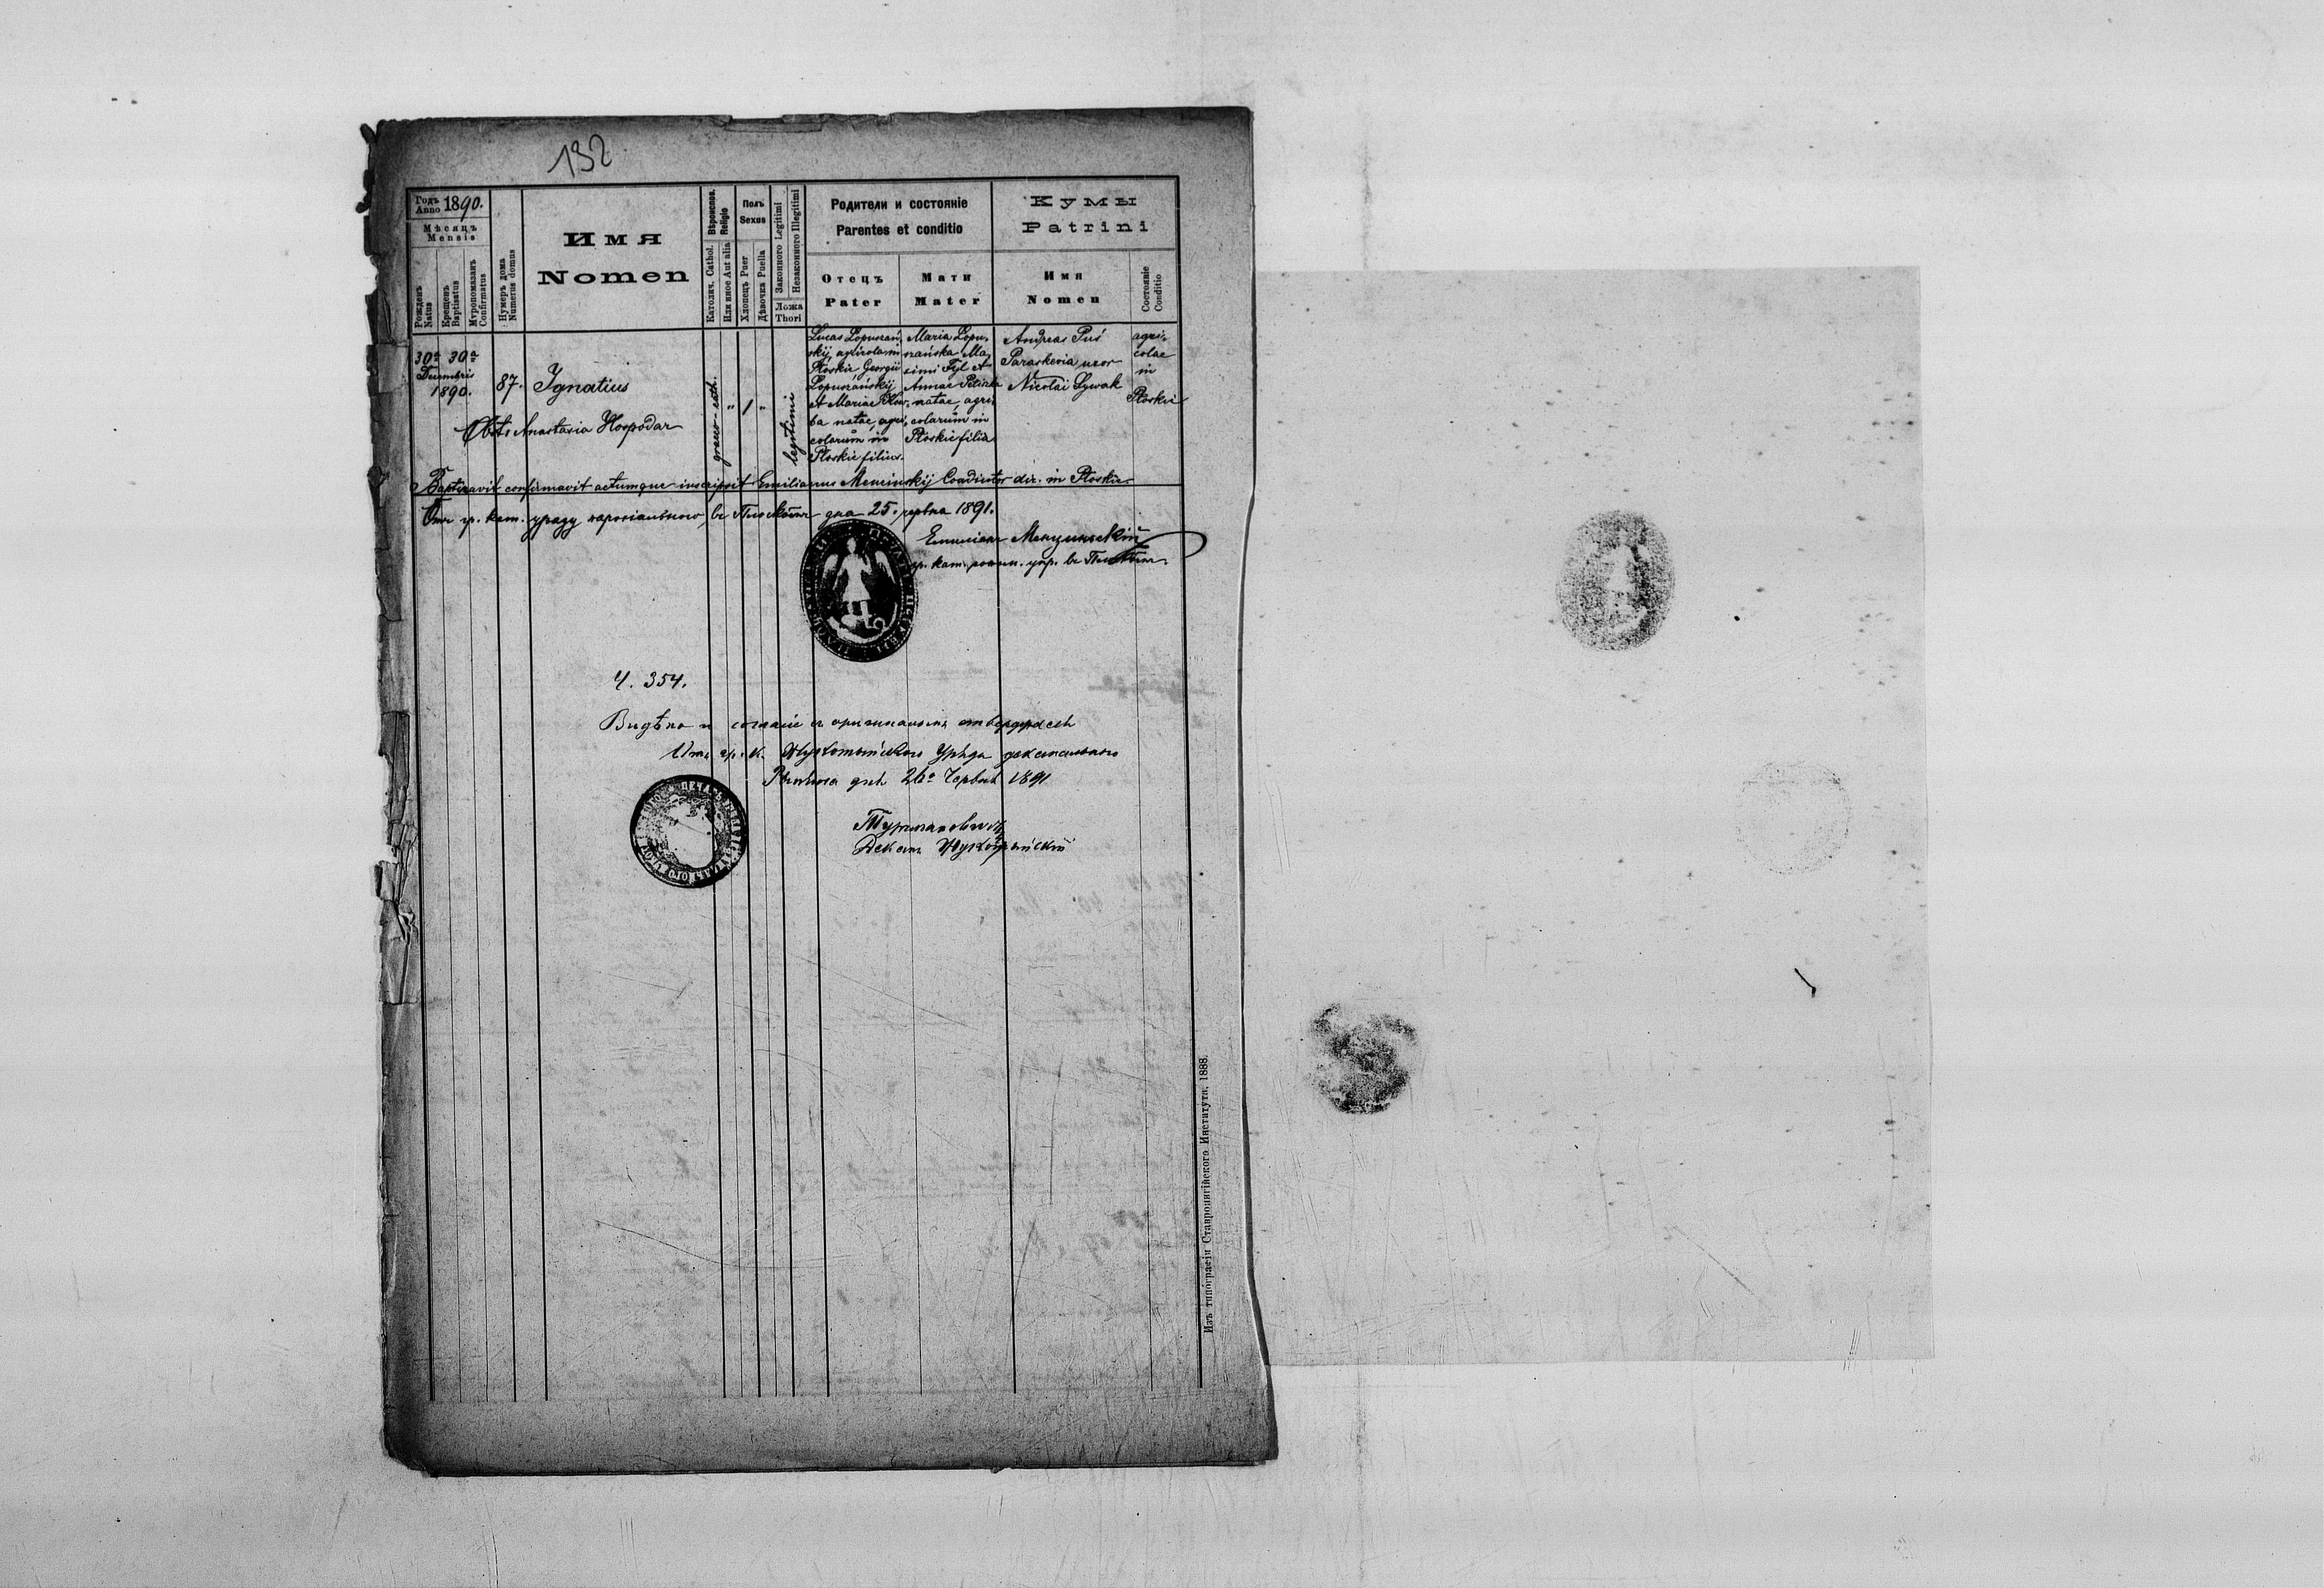 132
Годъ Anno 1890.
Мѣсяцъ
Mensis
Рожденъ
Natus
Крещенъ
Baptisatus
Мѵропомазанъ
Confirmatus
Нумеръ дома
Numerus domus
Имя
Nomen
Вѣроиспов.
Religio
Католич. Cathol.
Или иное Aut alia
Полъ
Sexus
Хлопецъ Puer
Дѣвочка Puella
Законного Legitimi
Незаконного Illegitimi
Ложа
Thori
Родители и состояніе
Parentes et conditio
Отецъ
Pater
Мати
Mater
Кумы
Patrini
Имя
Nomen
Состояніе
Conditio
30a 30a
Decembris
1890.
87.
Ignatius
Obst. Anastasia Hospodar
graeco-cath.
" 1 "
legitimi
Lucas Łopuszań,
skij, agricola in
Płoskie Georgii
Łopuszańskij
et Mariae
ba natae, agri,
colarum in
Płoskie filius.
Maria Łopu,
szańska Ma,
simi Fyl et
Annae
natae, agri,
colarum in
Płoskie filia
Andreas Puś
Paraskevia uxor
Nicolai Sywak
agri,
colae
in
Płoskie
Baptizavit confirmavit actumque inscripsit Emilianus Menciński Coadiutor dir. in Płoskie
Отъ гр. кат. уряду парохіального въ дня 25. червня 1891.
Емиліанъ Менциньскій
гр. кат. упр. въ
Ч. 354.
Видѣно и согласіе съ оригиналомъ
Отъ гр. к. Уряда деканального
дня 26о Червня 1891
Деканъ
ПЕЧАТЬ
Изъ типографіи Ставропигійского Института, 1888.